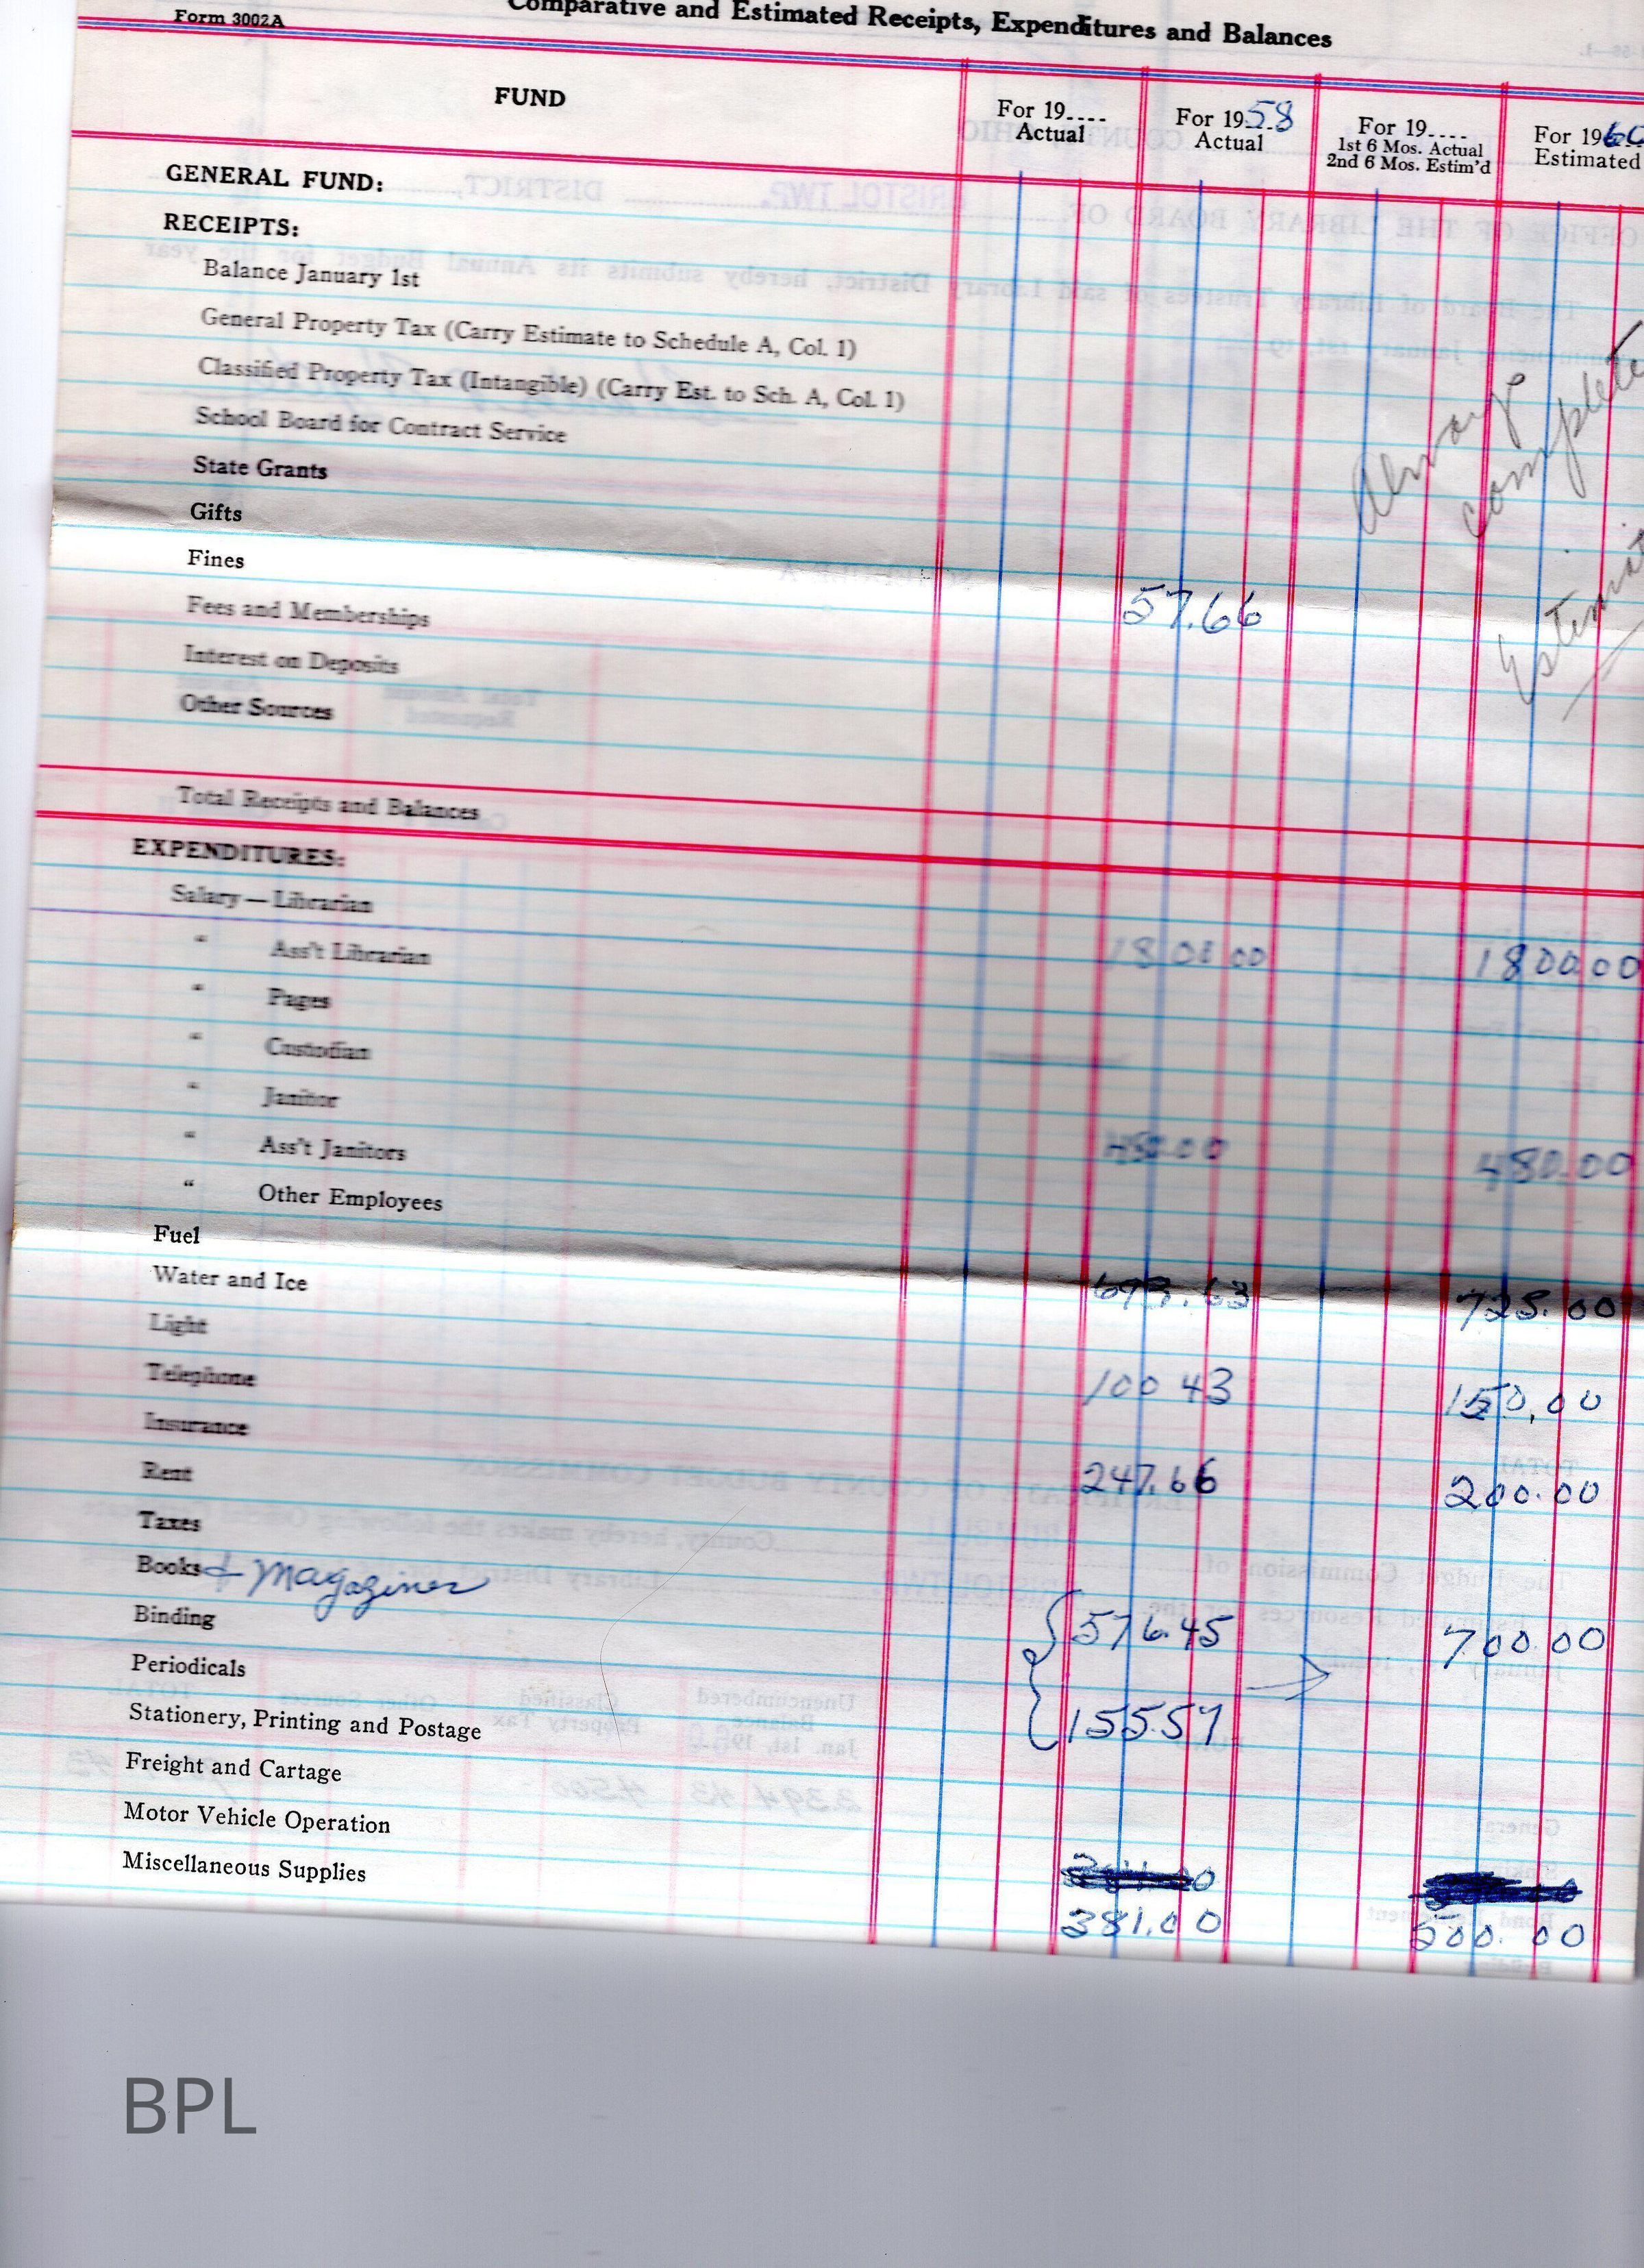 Comparative and Estimated Receipts, Expenditures and Balances
Form 3002A
FUND
For 19.... Actual
For 1958 Actual
For 19.... 1st 6 Mos. Actual 2nd 6 Mos. Estim'd
For 1960 Estimated
GENERAL FUND:
RECEIPTS:
Balance January 1st
General Property Tax (Carry Estimate to Schedule A, Col. 1)
Classified Property Tax (Intangible) (Carry Est. to Sch. A, Col. 1)
School Board for Contract Service
State Grants
Gifts
Always
complete
Fines 57.66
Fees and Memberships
Interest on Deposits
Other Sources
Total Receipts and Balances
EXPENDITURES:
Salary — Librarian 1800 00 1800.00
" Ass't Librarian
" Pages
" Custodian
" Janitor 480.00 480.00
" Ass't Janitors
" Other Employees
Fuel 725.00
Water and Ice
Light 100 43 150.00
Telephone
Insurance 247.66 200.00
Rent
Taxes
Books & Magazines 576.45 700.00
Binding
Periodicals 155.57
Stationery, Printing and Postage
Freight and Cartage
Motor Vehicle Operation
Miscellaneous Supplies
381.00 500.00
BPL